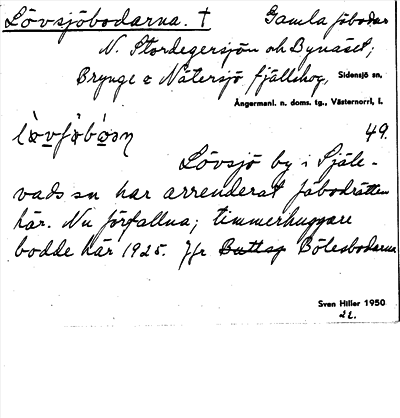 Lövsjöbodarna. † Gamla fäbodar
N. Stordegersjön och Bynäset;
Brynge o Nätersjö fjällskog, Sidensjö sn,
Ångermanl. n. doms. tg., Västernorrl. l.
49.
Lövsjö by i Själe-
vads sn har arrenderat fäbodrätten
här. Nu förfallna; timmerhuggare
bodde här 1925. Jfr Bölesbodarna
Sven Hiller 1950